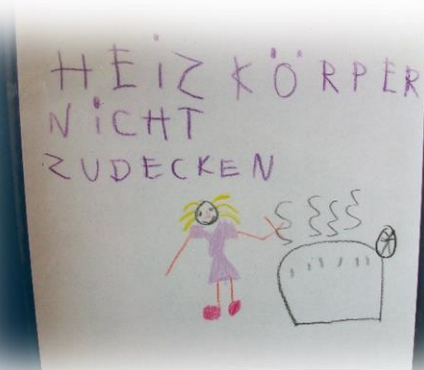 HEiZKÖRPER
NiCHT
ZUDECKEN